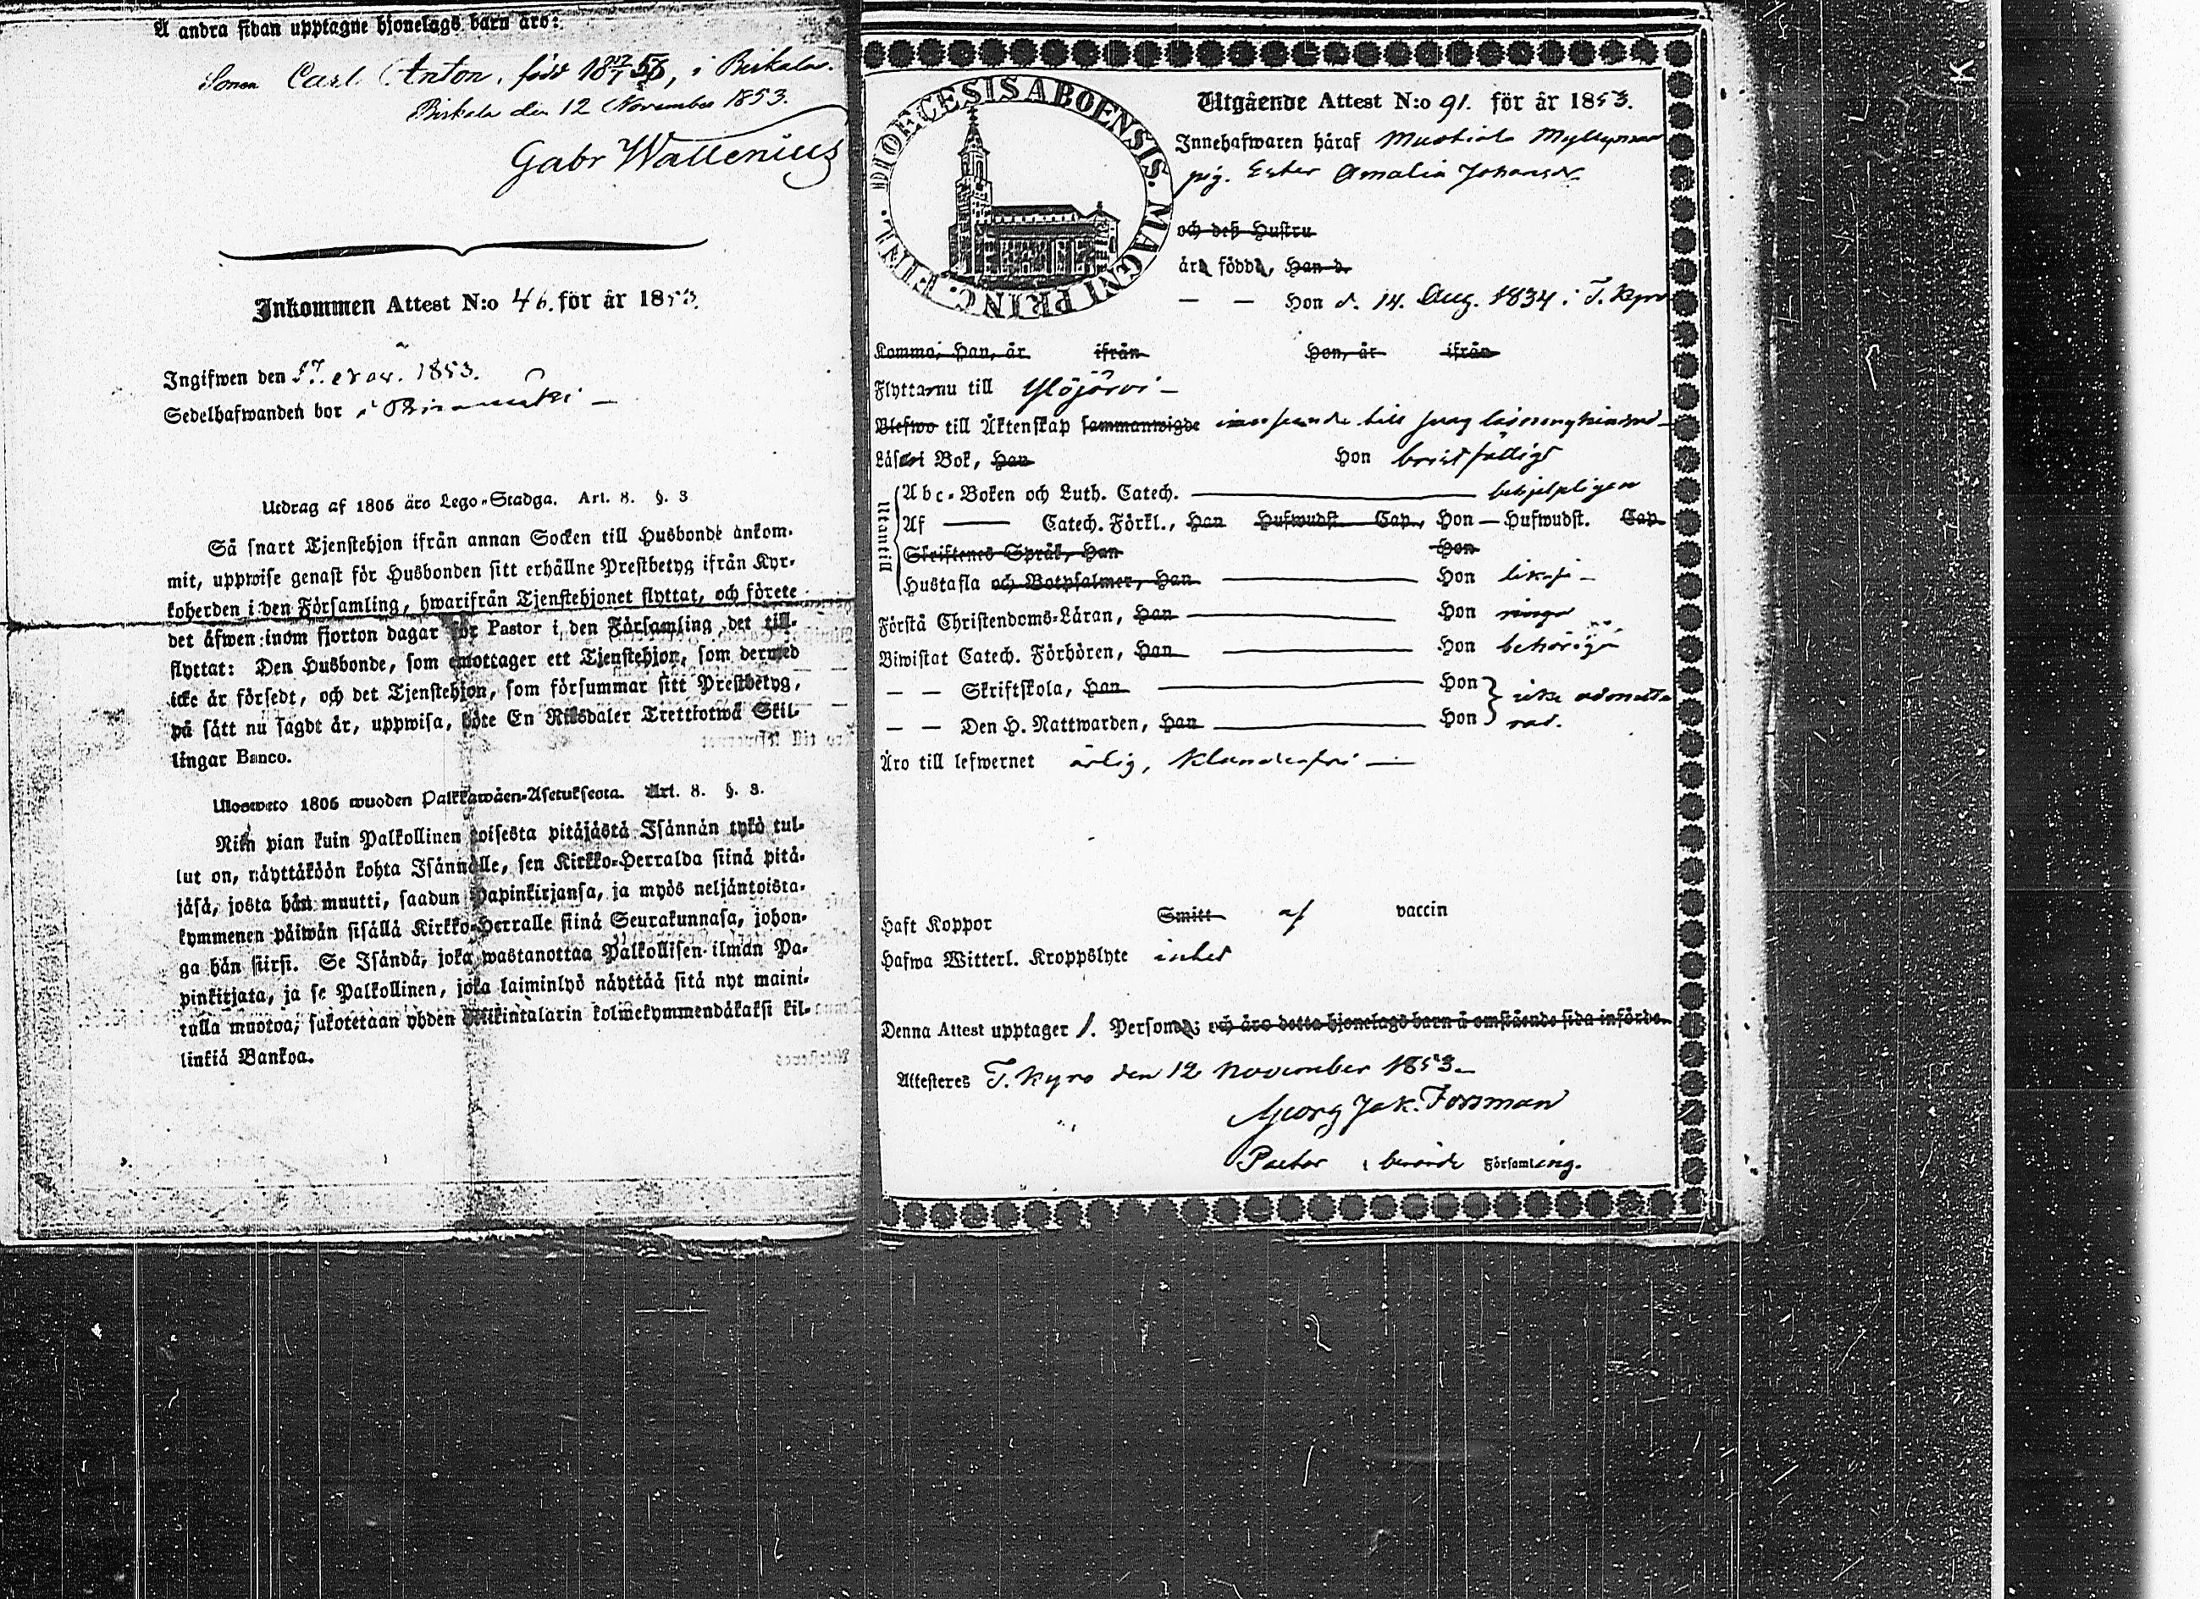 Å andra sidan upptagne hjonelags barn äro:
Sonen Carl Anton, född 18 22/7 53, i Birkala.
Birkala den 12 November 1853.
Gabr Wallenius
Inkommen Attest N:o 46. för år 1853.
Ingifwen den 1853.
Sedelhafwanden bor i
Utdrag af 1805 års Lego-Stadga. Art. 8. §. 3
Så snart Tjenstehjon ifrån annan Socken till Husbonde ankom-
mit, uppwise genast för Husbonden sitt erhållne Prestbetyg ifrån Kyr-
koherden i den Församling, hwarifrån Tjenstehjonet flyttat, och förete
det äfwen inom fjorton dagar för Pastor i den Församling det till-
flyttat: Den Husbonde, som emottager ett Tjenstehjon, som dermed
icke är försedt, och det Tjenstehjon, som försummar sitt Prestbetyg,
på sätt nu sagdt är, uppwisa, böte En Riksdaler Trettiotwå Skil-
lingar Banco.
Ulosweto 1805 wuoden Palkkawäen-Asetuksesta. Art. 8. §. 3.
Niin pian kuin Palkollinen toisesta pitäjästä Isännän tykö tul-
lut on, näyttäköön kohta Isännälle, sen Kirkko-Herralda siinä pitä-
jäsä, josta hän muutti, saadun Papinkirjansa, ja myös neljäntoista-
kymmenen päiwän sisällä Kirkko-Herralle siinä Seurakunnasa, johon-
ga hän siirsi. Se Isändä, joka wastanottaa Palkollisen ilman Pa-
pinkirjata, ja se Palkollinen, joka laiminlyö näyttää sitä nyt maini-
tulla muotoa, sakotetaan yhden Riikintalarin kolmekymmendäkaksi kil-
linkiä Bankoa.
DIOECESIS ABOENSIS. MAGNI PRINC. FINL.
Utgående Attest N:o 91. för år 1853.
Innehafwaren häraf
pig. Ester Amalia Johansdr
och dess Hustru
ära födda, Han d.
— — Hon d. 14. Aug. 1834 i T. Kyro
Komma, Han, år ifrån Hon, år ifrån
Flyttar nu till Ylöjärvi —
Blefwo till Äktenskap sammanwigde
Läser i Bok, Han Hon bristfälligt
Utantill
Abc-Boken och Luth. Catech. — behjelpligen
Af — Catech. Förkl., Han Hufwudst. Cap., Hon — Hufwudst. Cap.
Skriftenes Språk, Han Hon
Hustafla och Botpsalmer, Han — Hon
Förstå Christendoms-Läran, Han — Hon ringa
Biwistat Catech. Förhören, Han — Hon behörigt
— — Skriftskola, Han — Hon icke admitte
— — Den H. Nattwarden, Han — Hon rad.
Äro till lefwernet ärlig, klanderfri —
Haft Koppor Smitt af vaccin
Hafwa Witterl. Kroppslyte intet
Denna Attest upptager 1. Person, och äro detta hjonelags barn å omstående sida införde.
Attesteres T. Kyro den 12 November 1853.
Georg Jak. Forsman
Pastor i berörde Församling.
K